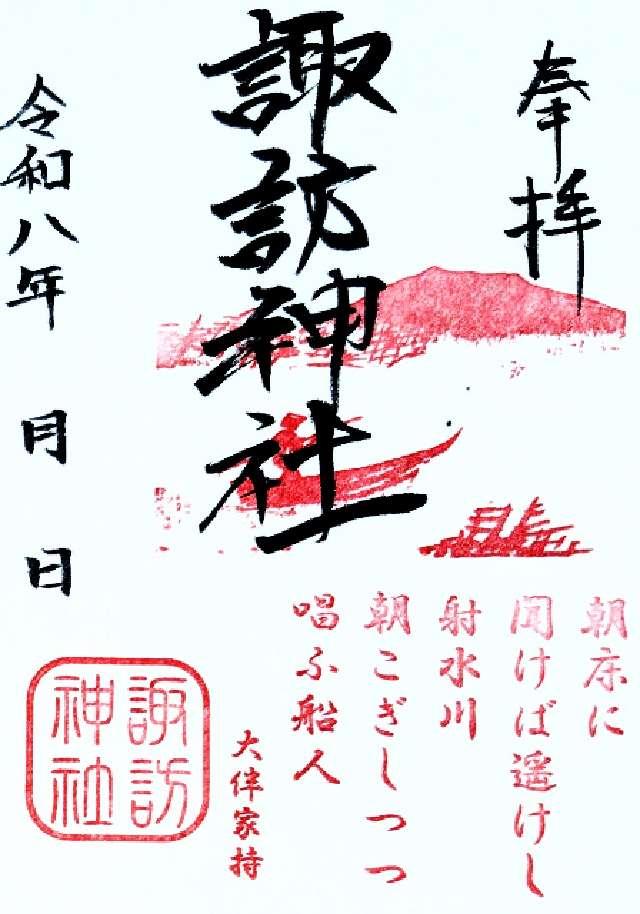 奉拝
諏訪神社
令和八年　月　日
朝床に
聞けば遥けし
射水川
朝こぎしつつ
唱ふ船人
大伴家持
諏訪
神社